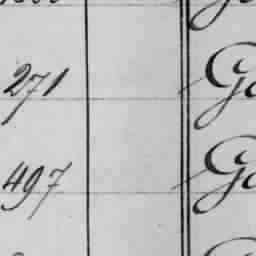 271 Go
497 Go